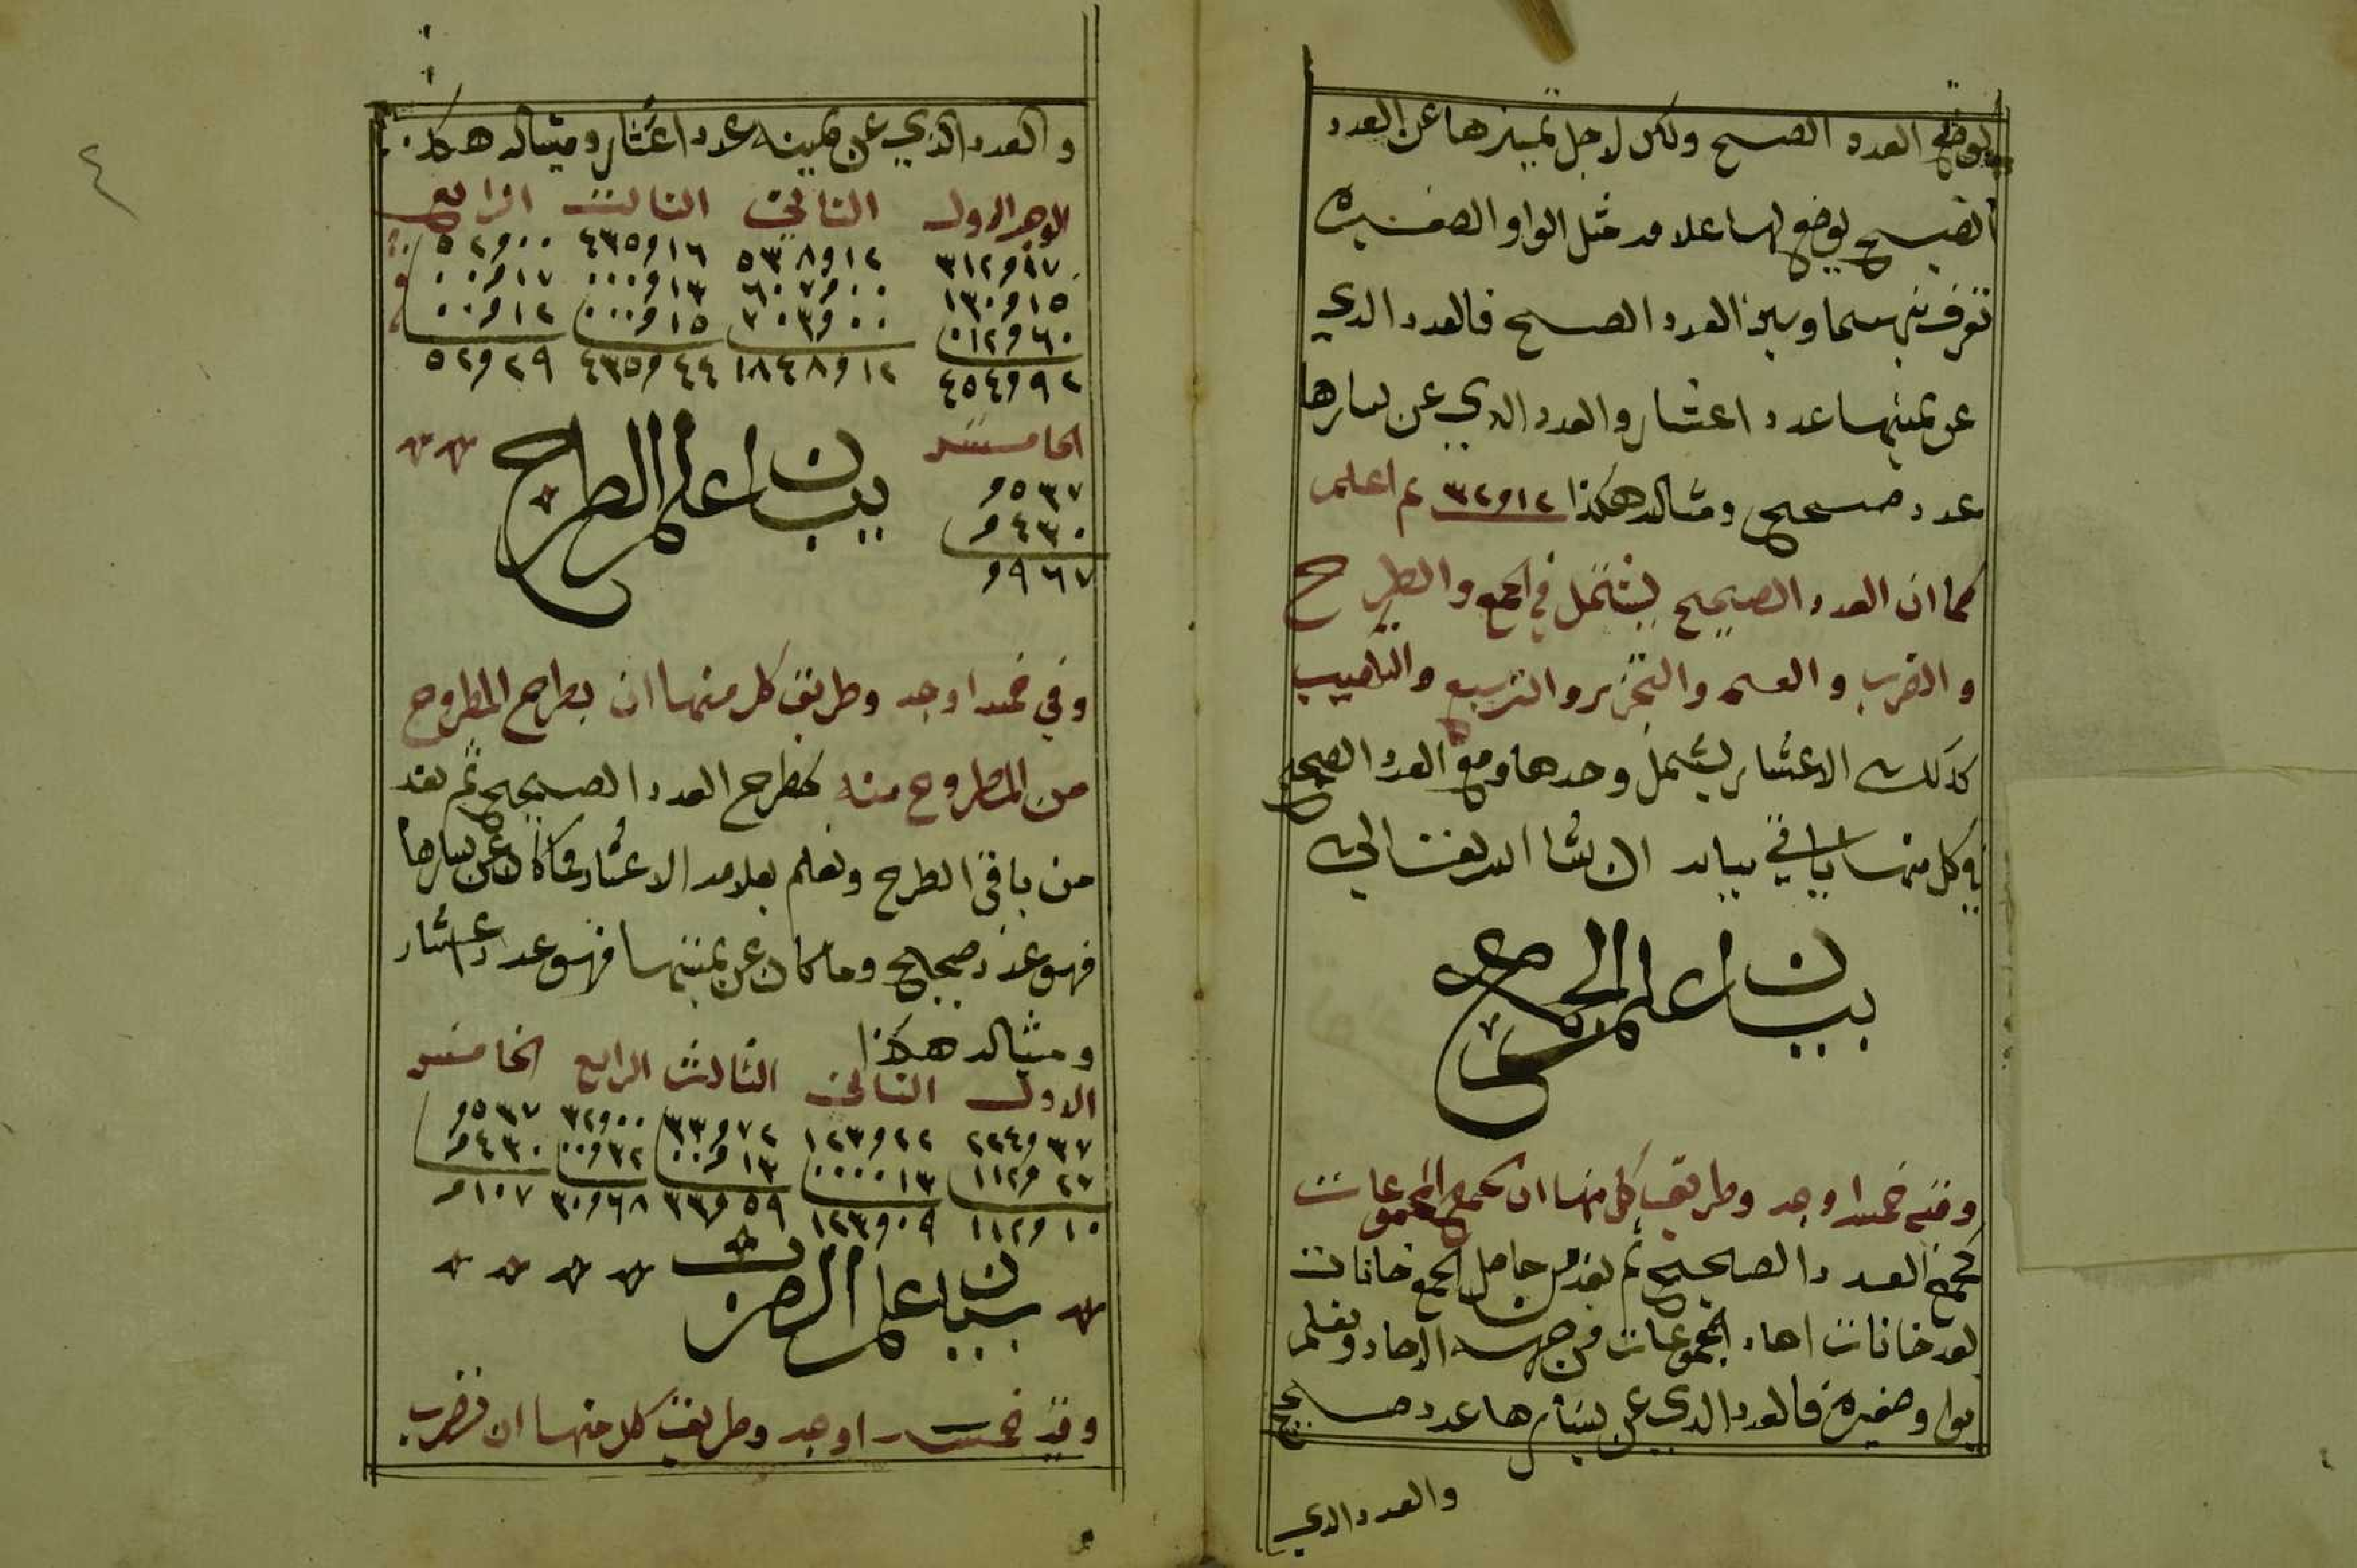 يوضع العدد الصحيح ولكن لاجل تمييزها عن العدد
الصحيح يوضع لها علامه مثل الواو الصغيره
تفرق بينهما وبين العدد الصحيح فالعدد الذي
عن يمينها عدد اعشار والعدد الذي عن يسارها
عدد صحيح ومثاله هكذا ٣٢و١٢ ثم اعلم
كما ان العدد الصحيح يستعمل في الجمع والطرح
والضرب والقسمه والتجزير والتربيع والتكعيب
كذلك الاعشار يستعمل وحدها ومع العدد الصحيح
وكل منها ياتي بيانه ان شا الله تعالى
بيان اعلم الجمع
وفيه خمسه اوجه وطريق كل منها ان تجمع المجموعات
كجمع العدد الصحيح ثم تعد من حاصل الجمع خانات
بعد خانات احاد المجموعات من جهه الاحاد وتعلم
بواو صغيرة فالعدد الذي عن يسارها عدد صحيح
والعدد الذي
٤
والعدد الذي عن يمينه عدد اعشار ومثاله هكذا
الوجه الاول الثاني الثالث الرابع
٣١٢و١٧ ٥٣٨و١٢ ٤٣٥و١٦ ٥٢و٠٠
١٣٠و١٥ ٦٠٧و٠٠ ٠٠٠و١٣ ٠٠و١٧
٠١٢و٦٠ ٣٠٣و٠٠ ٠٠٠و١٥ ٠٠و١٢
٤٥٤و٩٢ ١٨٤٨و١٢ ٤٣٥و٤٤ ٥٢و٢٩
الخامس
و٥٣٧
و٤٣٠
و٩٦٧
بيان اعلم الطرح
وفي خمسه اوجه وطريق كل منها ان يطرح المطروح
من المطروح منه كطرح العدد الصحيح ثم تعد
من باقي الطرح وتعلم بعلامه الاعشار فما كان عن يسارها
فهو عدد صحيح وما كان عن يمينها فهو عدد اعشار
ومثاله هكذا
الاول الثاني الثالث الرابع الخامس
٢٢٤و٣٧ ١٢٣و٢٢ ٣٣و٧٢ ٣٢و٠٠ و٥٣٧
١١٢و٢٧ ٠٠٠٠١٣ ٠٠و١٣ ٠٠و٣٢ و٤٣٠
١١٢و١٠ ١٢٣و٠٩ ٣٣و٥٩ ٣٠و٦٨ و١٠٧
بيان اعلم الضرب
وفيه خمسه اوجه وطريق كل منها ان تضرب